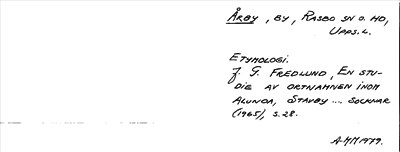 Årby, by, Rasbo sn o. hd,
Upps. l.
Etymologi.
J. G. Fredlund, En stu-
die av ortnamnen inom
Alunda, Stavby ... socknar
(1965), s. 28.
A-MM 1979.